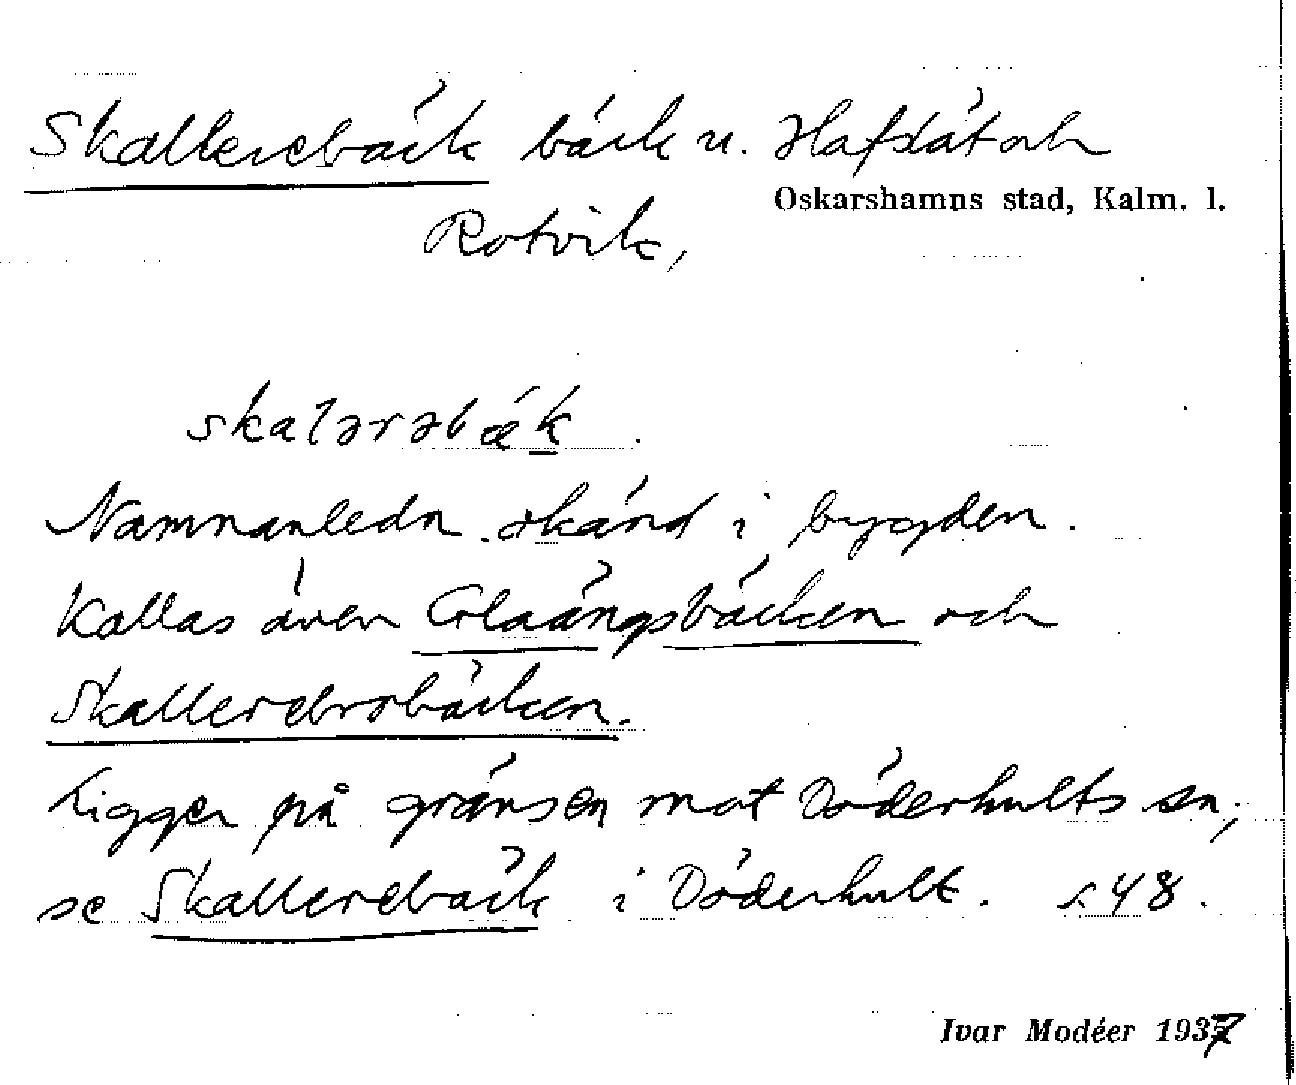 Skallerebäck bäck u. Hafslät och
Oskarshamns stad, Kalm. l.
Rotvik,
skalərəbæk
Namnanledn. okänd i bygden.
Kallas även Glaängsbäcken och
Skallerebrobäcken.
Ligger på gränsen mot Döderhults sn;
se Skallerebäck i Döderhult. s. 48.
Ivar Modéer 1937